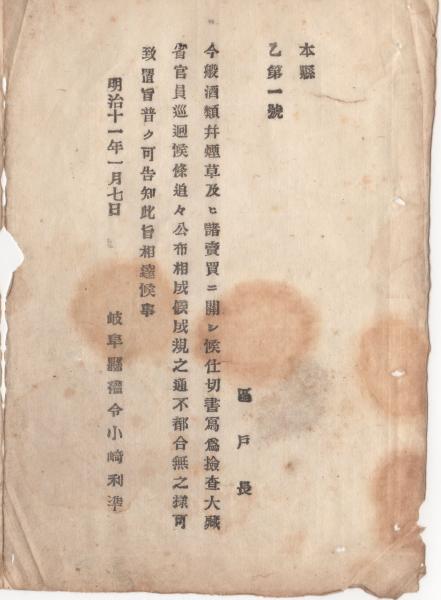 本縣
乙第一號
區戸長
今般酒類幷煙草及ヒ諸賣買ニ關シ候仕切書寫爲撿査大藏
省官員巡廻候條追々公布相成候成規之通不都合無之樣可
致置旨普ク可告知此旨相達候事
明治十一年一月七日
岐阜縣權令小崎利準